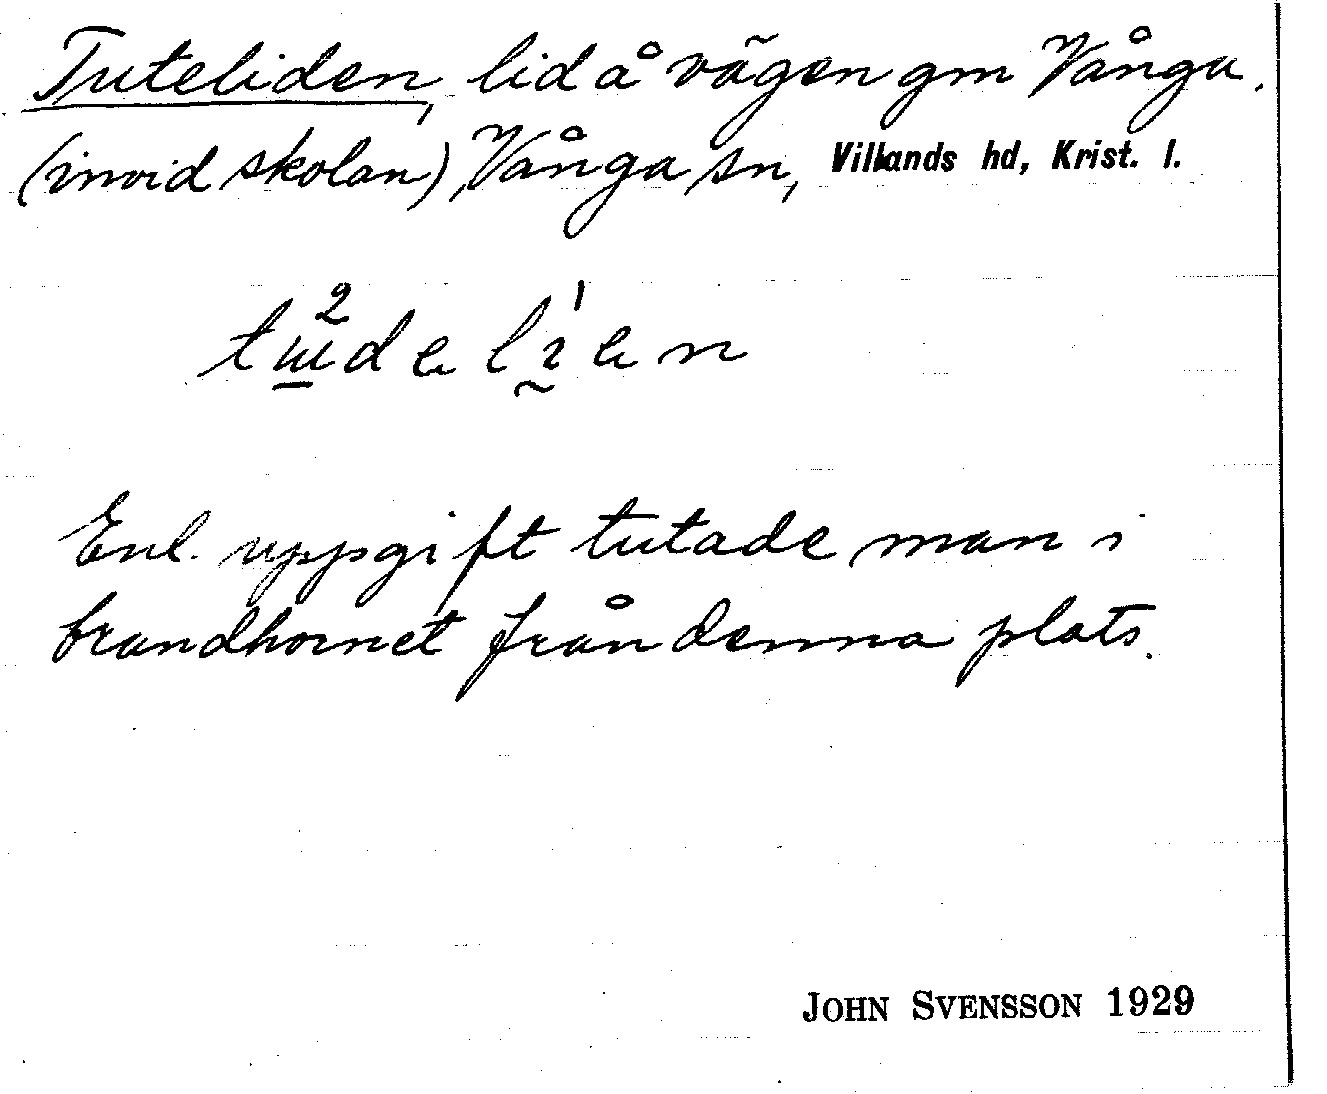 Tuteliden, lid å vägen gm Vånga.
(invid skolan), Vånga sn, Villands hd, Krist. l.
Enl. uppgift tutade man i
brandhornet från denna plats.
JOHN SVENSSON 1929